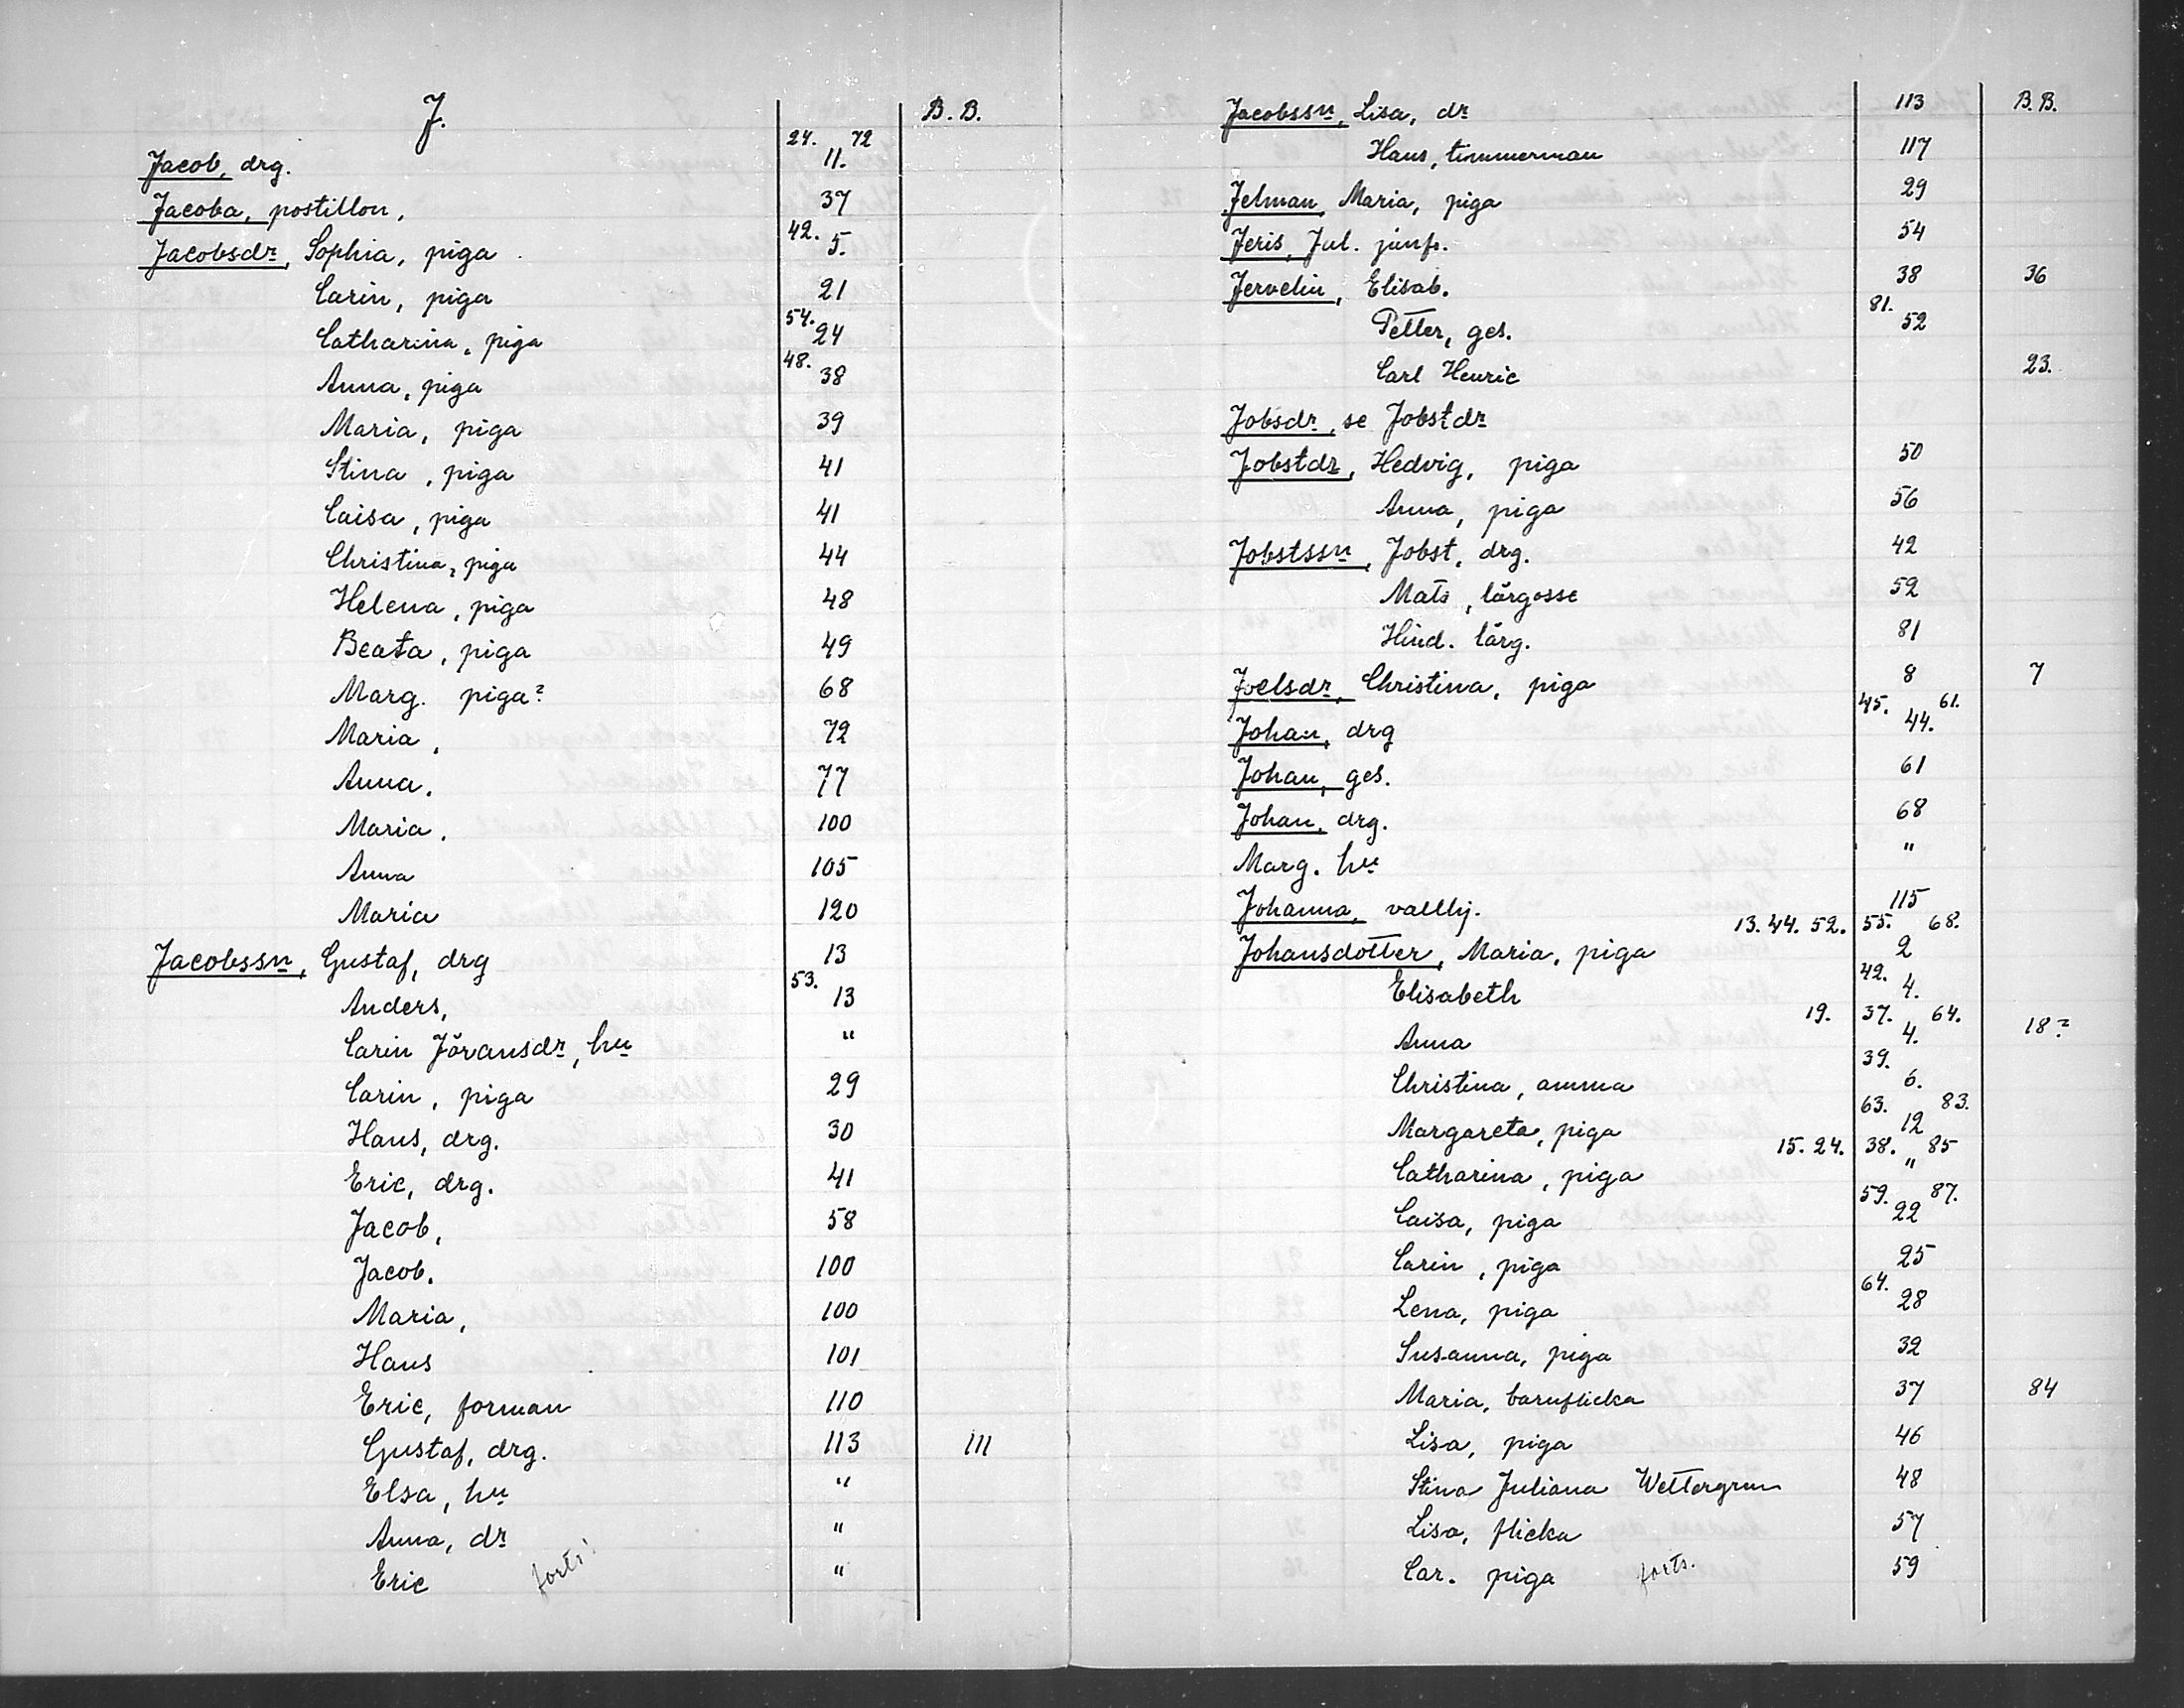 J. B. B.
24. 72
Jacob, drg. 11.
Jacoba, postillon, 37
42.
Jacobsdr, Sophia, piga 5.
Carin, piga 21
54.
Catharina, piga 24
48.
Anna, piga 38
Maria, piga 39
Stina, piga 41
Caisa, piga 41
Christina, piga 44
Helena, piga 48
Beata, piga 49
Marg. piga? 68
Maria, 72
Anna. 77
Maria. 100
Anna 105
Maria 120
Jacobssn, Gustaf, drg 13
53.
Anders, 13
Carin Jöransdr, hu "
Carin, piga 29
Hans, drg. 30
Eric, drg. 41
Jacob, 58
Jacob. 100
Maria, 100
Hans 101
Eric, forman 110
Gustaf, drg. 113 111
Elsa, hu "
Anna, dr "
Eric forts! "
Jacobssn, Lisa, dr 113 B. B.
Hans, timmerman 117
Jelman, Maria, piga 29
Jeris, Jul. jumfr. 54
Jervelin, Elisab. 38 36
81.
Petter, ges. 52
Carl Henric 23.
Jobsdr, se Jobstdr
Jobstdr, Hedvig, piga 50
Anna, piga 56
Jobstssn, Jobst, drg. 42
Mats, lärgosse 52
Hind. lärg. 81
Joelsdr, Christina, piga 8 7
45. 61.
Johan, drg 44.
Johan, ges. 61
Johan, drg. 68
Marg. hu "
Johanna, vallhj. 115
13. 44. 52. 55. 68.
Johansdotter, Maria, piga 2
42.
Elisabeth 4.
19. 37. 64.
Anna 4. 18?
39.
Christina, amma 6.
63. 83.
Margareta, piga 12
15. 24. 38. 85
Catharina, piga "
59. 87.
Caisa, piga 22
Carin, piga 25
64.
Lena, piga 28
Susanna, piga 32
Maria, barnflicka 37 84
Lisa, piga 46
Stina Juliana Wettergren 48
Lisa, flicka 57
Car. piga forts. 59